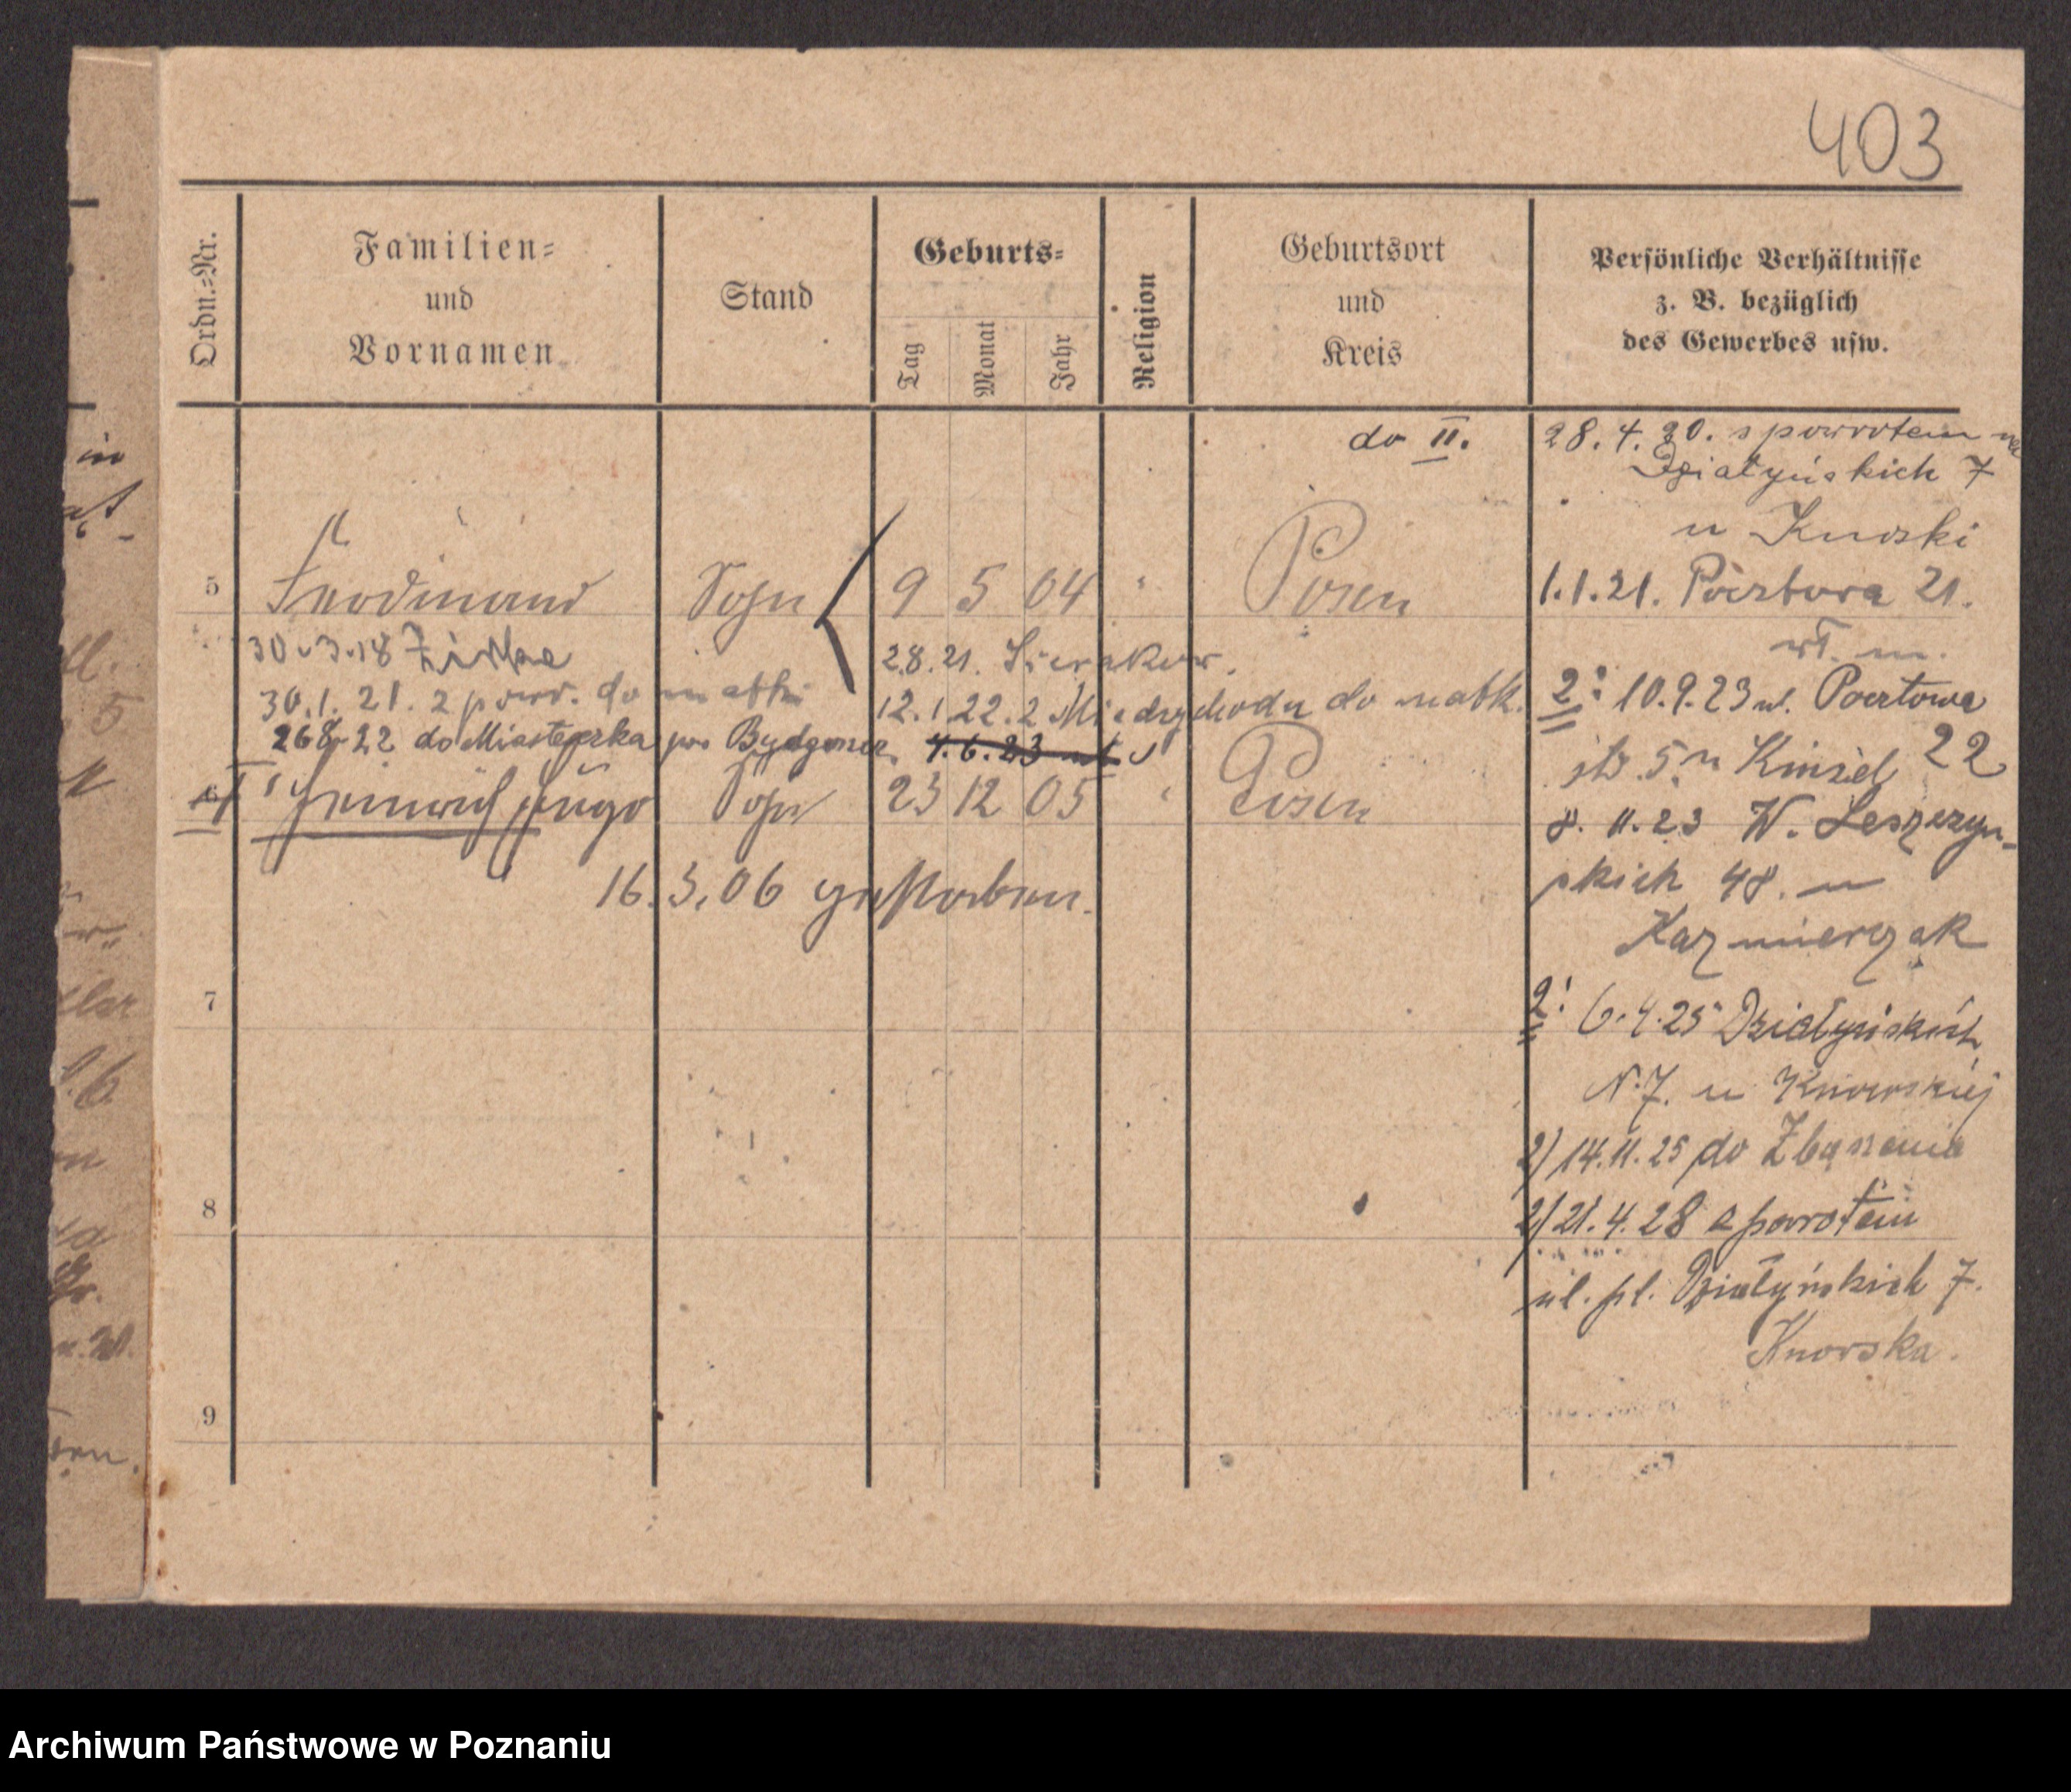 403
Ordn.-Nr.
Familien-
und
Vornamen
Stand
Geburts-
Tag
Monat
Jahr
Religion
Geburtsort
und
Kreis
Persönliche Verhältnisse
z. B. bezüglich
des Gewerbes usw.
do II.
28. 4. 20. s powrotem na
Działyńskich 7
u Knoski
5 Ferdinand Sohn 9 5 04 " Posen
1.1.21. Pocztowa 21.
30.3.18
28.21. Sieraków.
30.1.21. z pow. do matki
12.1 22. z Międzychodu do matk.
2: 10.9.23 ul. Pocztowa
268.22 do Miasteczka pow Bydgoszcz 4.6.23
22
6 Heinrich Hugo Sohn 23 12 05 " Posen
8. 11. 23 W. Leszczyń-
skich 48. u
16.3.06 gestorben.
Kazmierczak
7
2: 6.4.25 Działyńskich
N. 7. u Knowskiej
2) 14.11.25 do Zbąszenia
8
2) 21.4.28 z powrotem
ul. pl. Działyńskich 7.
Knorska.
9
Archiwum Państwowe w Poznaniu